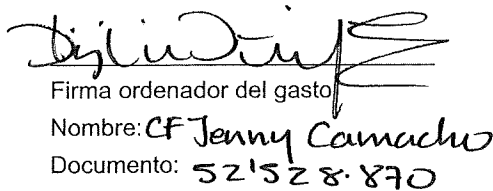 Firma ordenador del gasto
Nombre: CF Jenny Camacho
Documento: 52'528.870